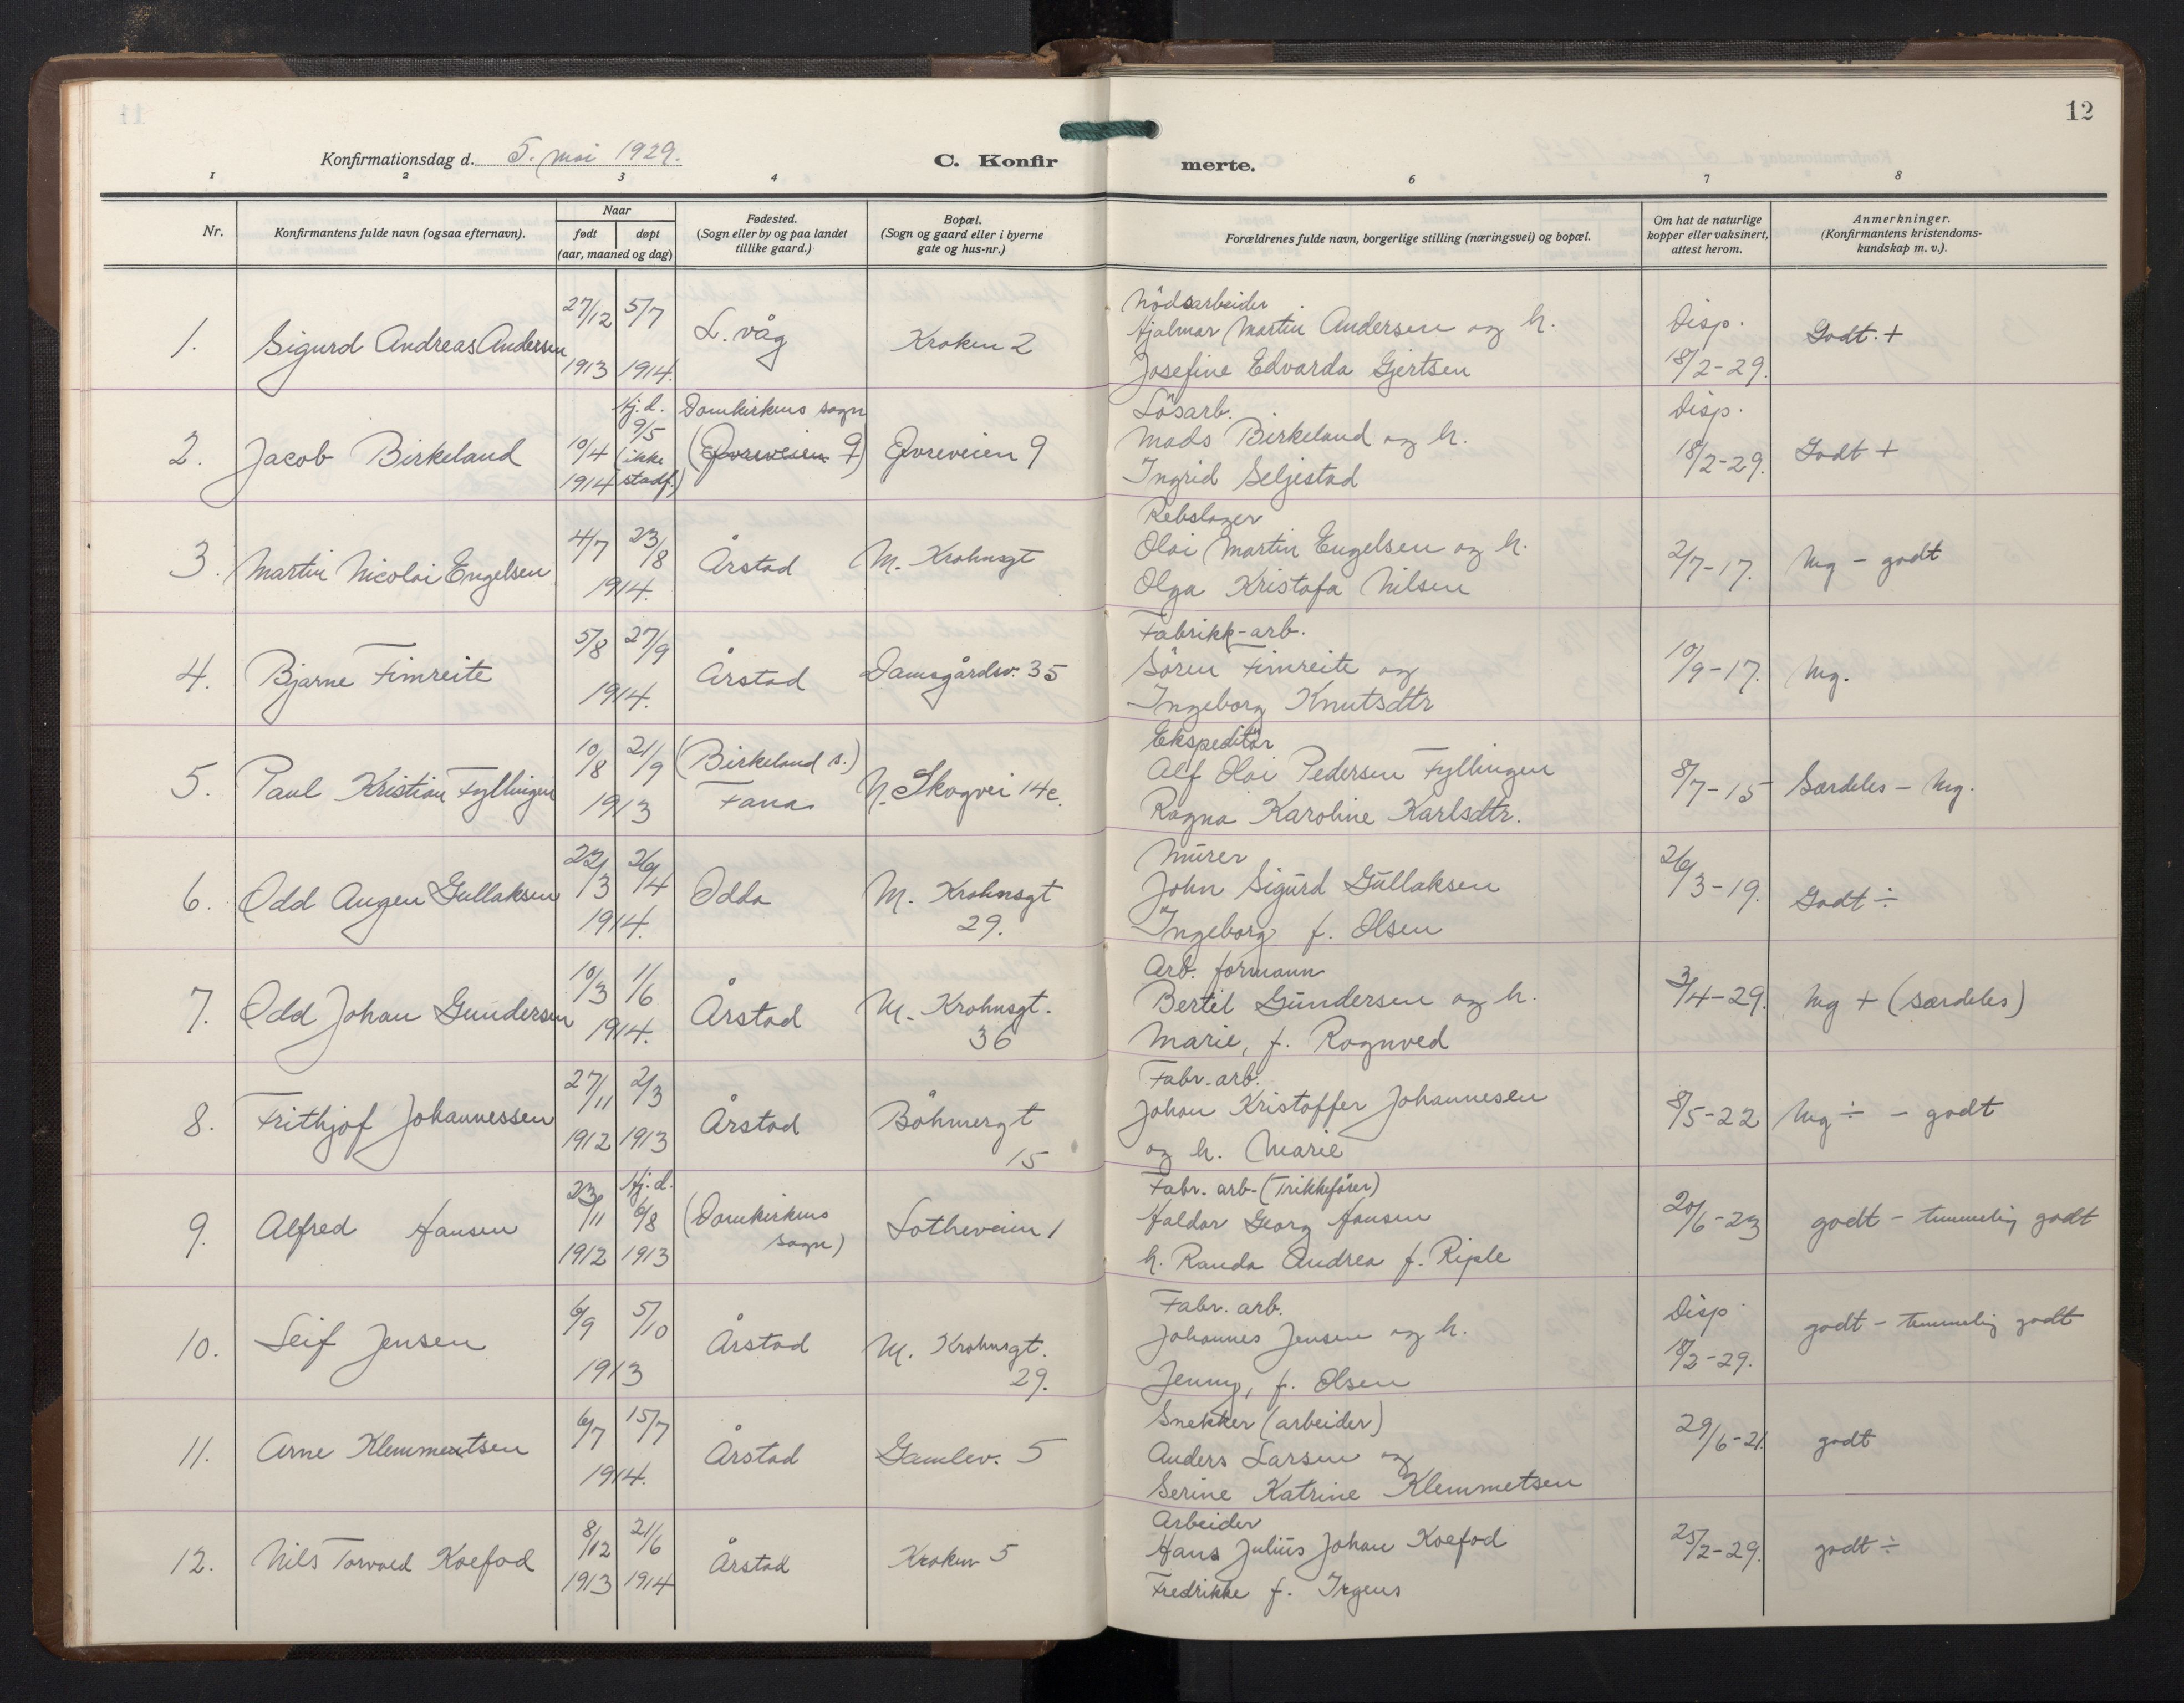 12
Konfirmationsdag d. 5. mai 1929.
C. Konfirmerte.
1 2 3 4 6 7 8
Nr.
Konfirmantens fulde navn (ogsaa efternavn).
Naar
født døpt
(aar, maaned og dag)
Fødested.
(Sogn eller by og paa landet
tillike gaard.)
Bopæl.
(Sogn og gaard eller i byerne
gate og hus-nr.)
Forældrenes fulde navn, borgerlige stilling (næringsvei) og bopæl.
Om hat de naturlige
kopper eller vaksinert,
attest herom.
Anmerkninger.
(Konfirmantens kristendoms-
kundskap m. v.).
1. Sigurd Andreas Andersen
27/12 1913
5/7 1914.
L. våg
Kroken 2
Nödsarbeider
Hjalmar Martin Andersen og h.
Josefine Edvarda Gjertsen
Disp.
18/2-29.
Godt. +
2. Jacob Birkeland
10/4 1914
Hj. d.
9/5
(ikke
stadf.)
Domkirkens sogn
(Øvreveien 9)
Øvreveien 9
Lösarb.
Mads Birkeland og h.
Ingrid Seljestad
Disp.
18/2-29.
Godt +
3. Martin Nicolai Engelsen
4/7 23/8
1914.
Årstad
M. Krohnsgt
Rebslager
Olai Martin Engelsen og h.
Olga Kristofa Nilsen
2/7-17.
Mg - godt
4. Bjarne Fimreite
5/8 27/9
1914.
Årstad
Damsgårdsv. 35
Fabrikk-arb.
Sören Fimreite og
Ingeborg Knutsdtr
10/9-17.
Mg.
5. Paul Kristian Fyllingen
10/8 21/9
1913
(Birkeland s.)
Fana
N. Skogvei 14c.
Ekspeditör
Alf Olai Pedersen Fyllingen
Ragna Karoline Karlsdtr.
8/7-15
Særdeles - Mg.
6. Odd Augen Gullaksen
22/3 26/4
1914.
Odda
M. Krohnsgt
29.
Murer
John Sigurd Gullaksen
Ingeborg f. Olsen
26/3-19.
Godt ÷
7. Odd Johan Gundersen
10/3 1/6
1914.
Årstad
M. Krohnsgt.
36
Arb. formann
Bertil Gundersen og h.
Marie, f. Rognved
3/4-29.
Mg + (særdeles)
8. Frithjof Johannessen
27/11 1912
2/3 1913
Årstad
Böhmergt
15
Fabr. arb.
Johan Kristoffer Johannesen
og h. Marie
8/5-22
Mg ÷ - godt
9. Alfred Hansen
23/11 1912
Hj. d.
6/8 1913
(Domkirkens
sogn)
Lotheveien 1
Fabr. arb. (Trikkefører)
Haldor Georg Hansen
h. Randa Andrea f. Riple
20/6-23
godt - temmelig godt
10. Leif Jensen
6/9 5/10
1913
Årstad
M. Krohnsgt.
29.
Fabr. arb.
Johannes Jensen og h.
Jenny, f. Olsen
Disp.
18/2-29.
godt - temmelig godt
11. Arne Klemmentsen
6/7 15/7
1914.
Årstad
Gamlev. 5
Snekker (arbeider)
Anders Larsen og
Serine Katrine Klemmetsen
29/6-21.
godt
12. Nils Torvald Koefod
8/12 1913
21/6 1914
Årstad
Kroken 5
Arbeider
Hans Julius Johan Koefod
Fredrikke f. Irgens
25/2-29.
godt ÷